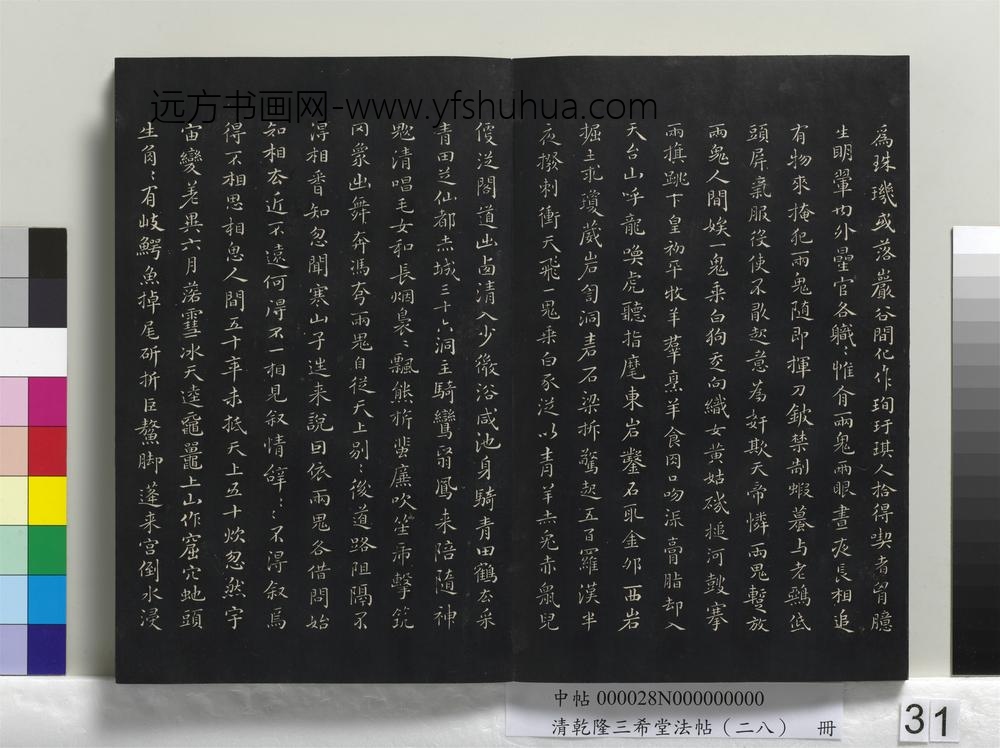 远方书画网-www.yfshuhua.com
為珠璣或落巖谷間化作珣玗琪人拾得喫者胷臆
生明翬内外曐官各職〻惟有兩鬼兩眼晝夜長相追
有物來掩犯兩鬼隨即揮刀鈹禁制蝦蟇与老鵶低
頭屏氣服役使不敢起意為奸欺天帝憐兩鬼蹔放
兩鬼人間娭一鬼乘白狗走向織女黃姑磯槌河皷搴
兩旗跳下皇初平牧羊羣烹羊食肉口吻流膏脂却入
天台山呼龍喚虎聽指麾東岩鑿石取金卯西岩
掘土求瓊葳岩訇洞砉石梁拆驚起五百羅漢半
夜撥剌衝天飛一鬼乘白豕從以青羊赤兔赤鼠兒
便從閣道出西清入少微浴咸池身騎青田鶴去采
青田芝仙都赤城三十六洞主騎鸞翳鳳來陪隨神
魖清唱毛女和長烟裊〻飄熊旂蜚廉吹笙沸擊筑
罔象出舞奔馮夷兩鬼自從天上別〻後道路阻隔不
得相昬知忽聞寒山子徃來說因依兩鬼各借問始
知相去近不遠何得不一相見叙情辭〻〻不得叙焉
得不相思相思人間五十年未抵天上五十炊忽然宇
宙變差異六月落雪冰天逵黿鼉上山作窟穴虵頭
生角〻有岐鱷魚掉尾斫折巨鰲脚蓬來宮倒水浸
中帖 000028N000000000
清乾隆三希堂法帖（二八） 冊
31